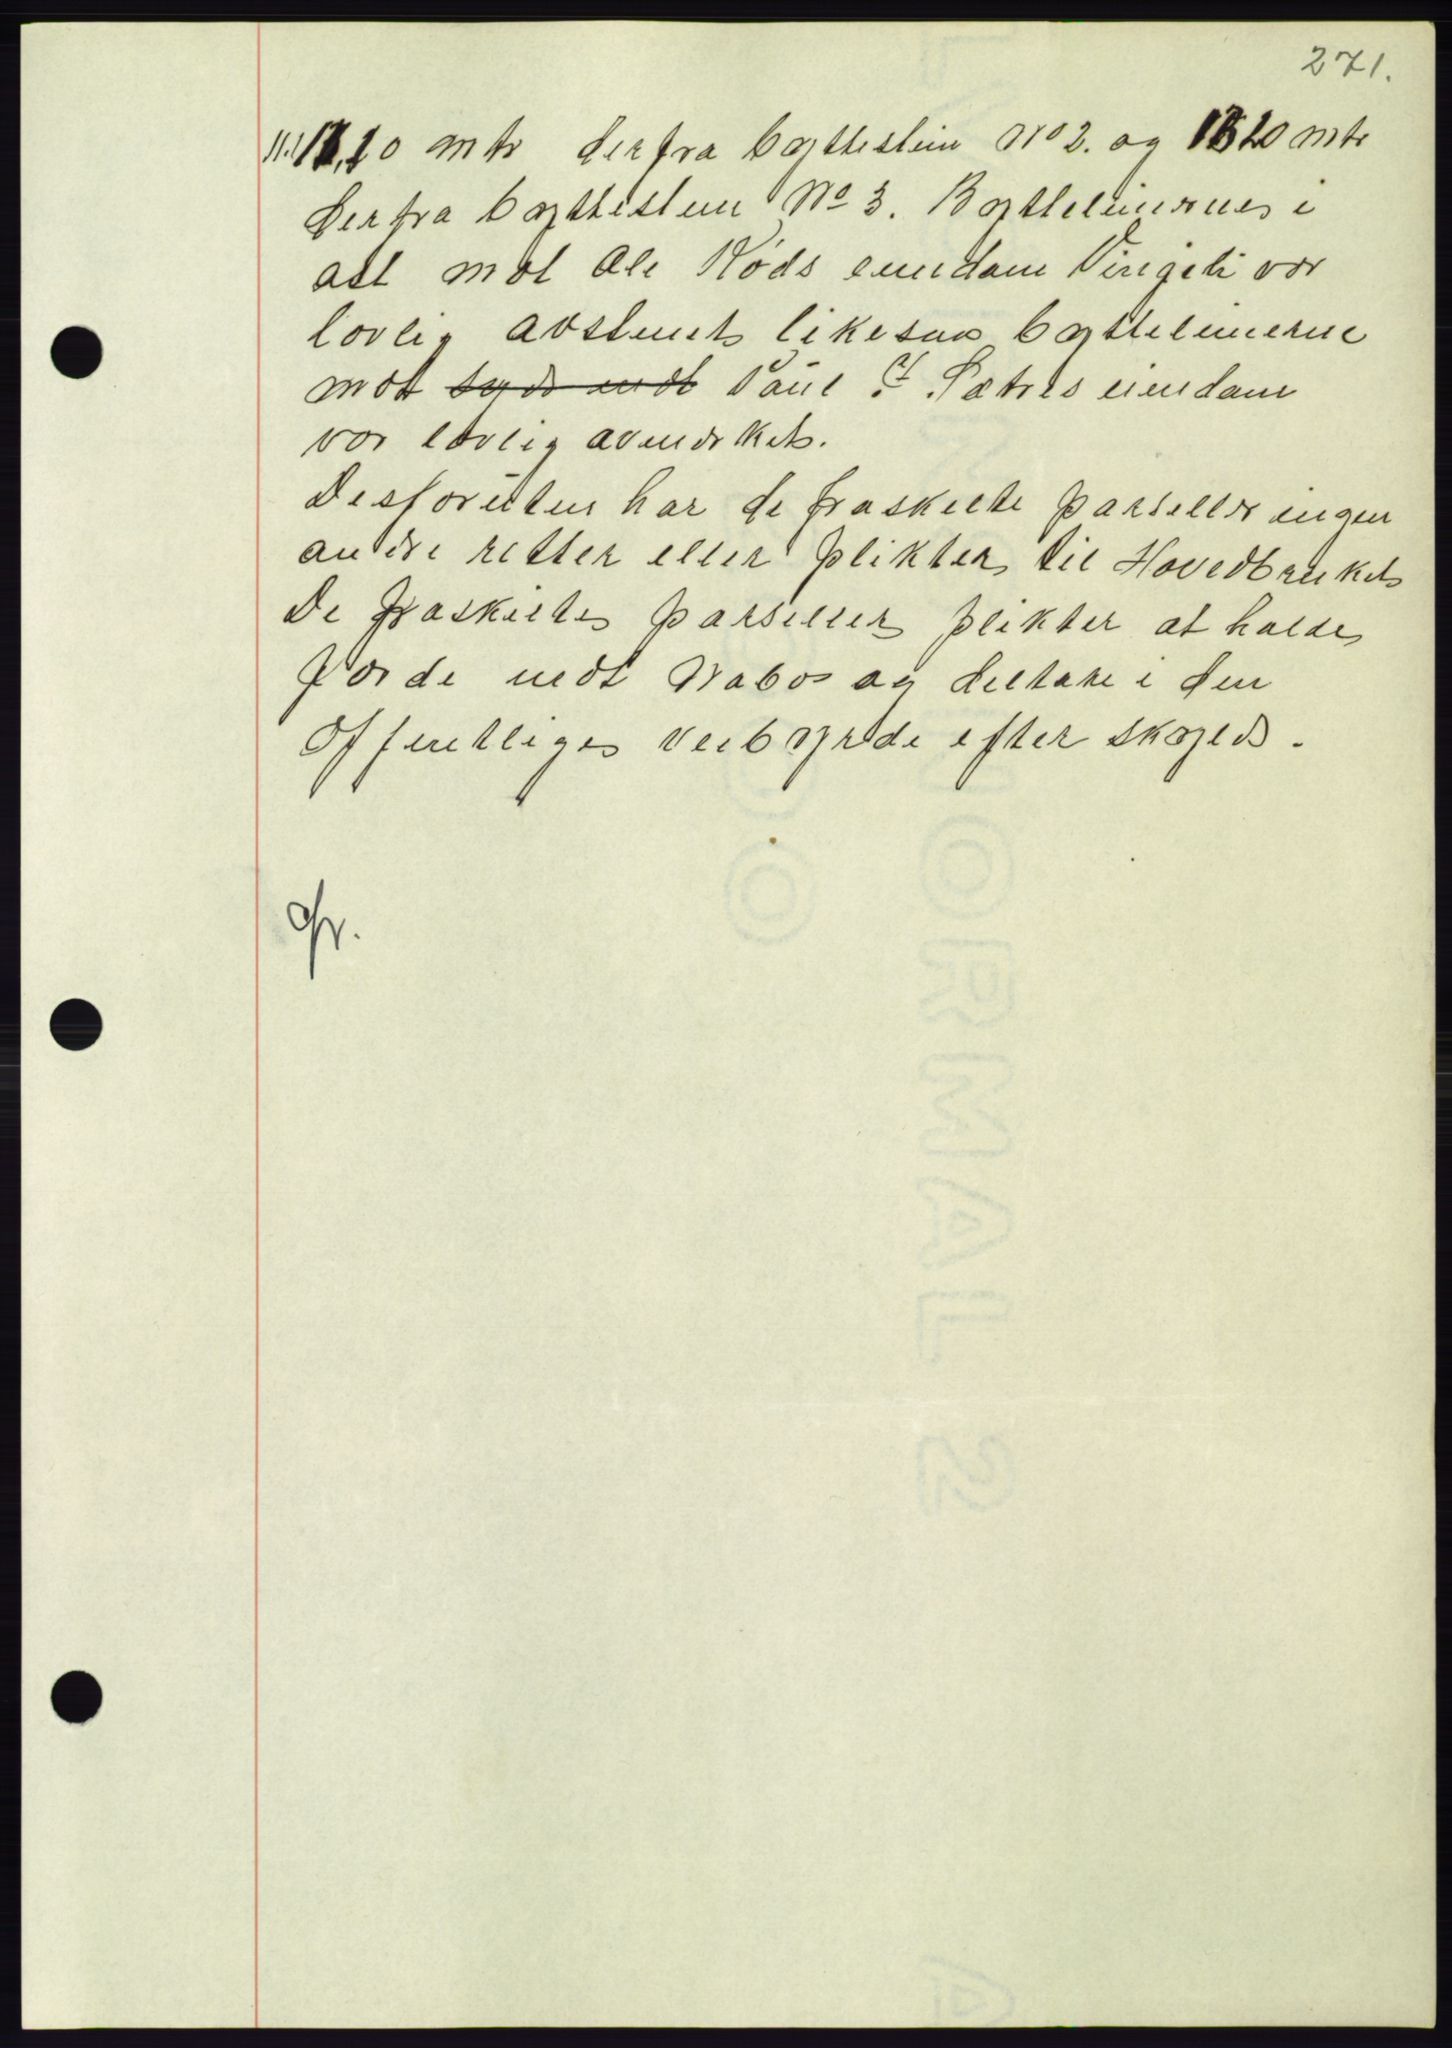 271.
mtr derfra byttestein No 2. og mtr
derfra byttestein No 3. Byttelinierne i
øst mot Ole Røds eiendom Vingeli var
lovlig avstenet likesaa byttelinierne
mot syd mot Paul Sætres eiendom
var lovlig avmerket.
Desforuten har de fraskilte parseller ingen
andre retter eller plikter til Hovedbruket
De fraskilte parseller plikter at holde
gjærde mot Nabo og deltake i den
offentlige veibyrde efter skyld.